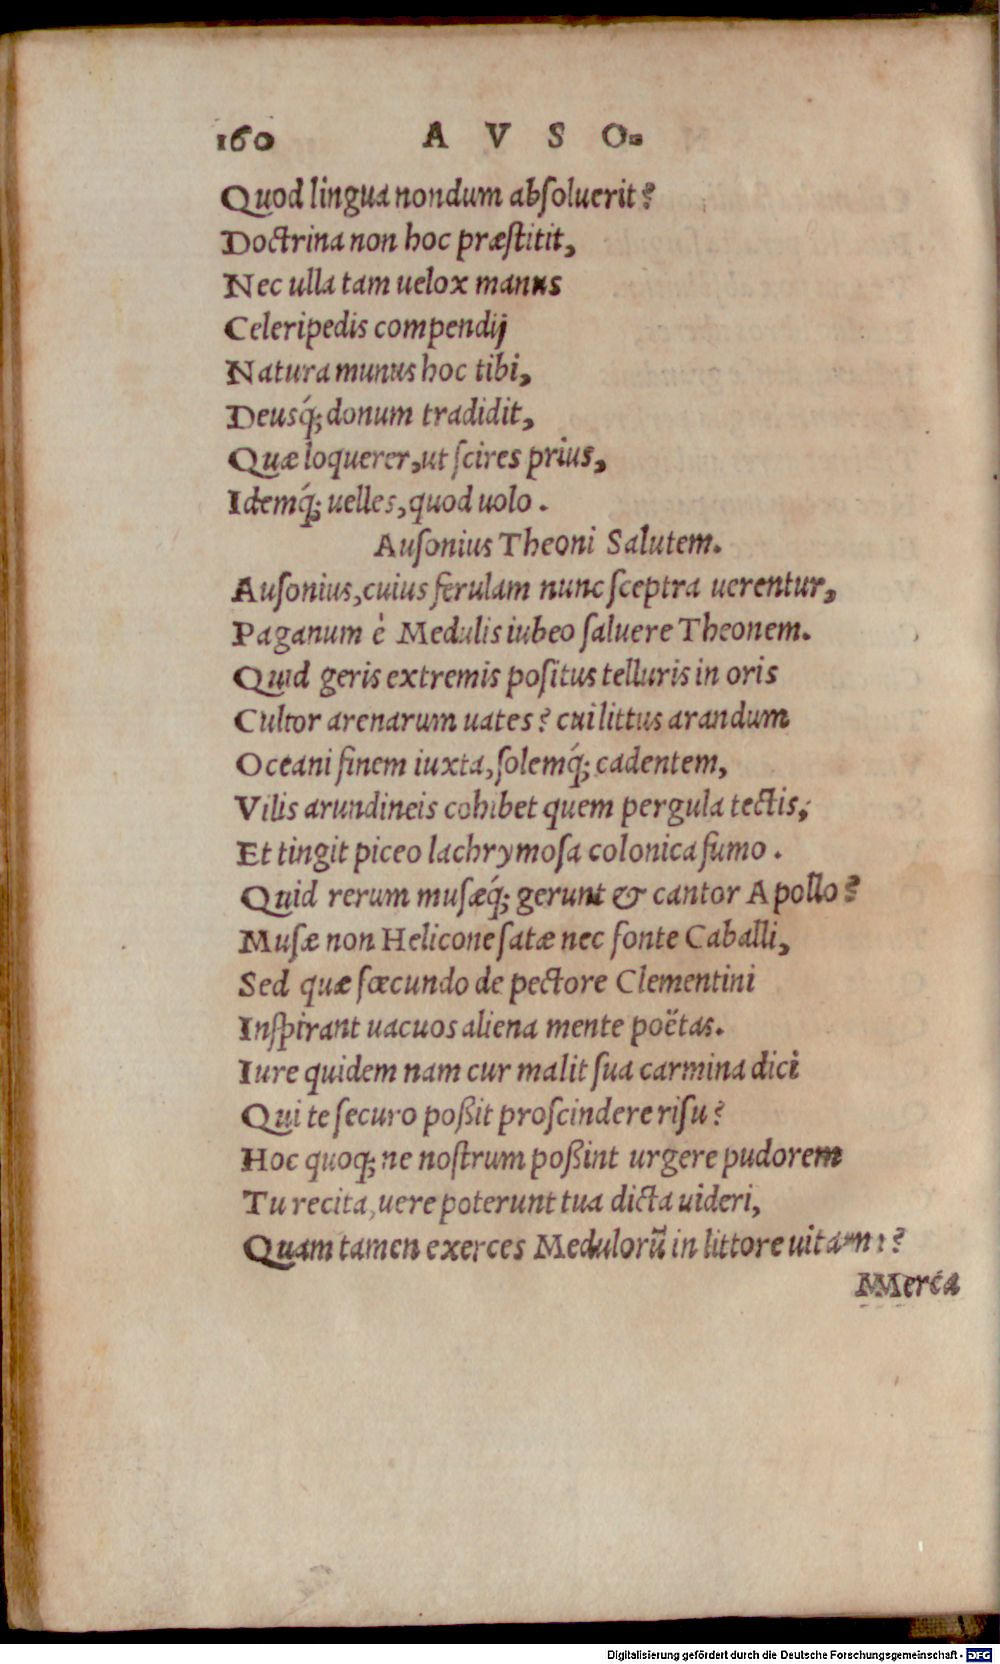 160 A V S O-
Quod lingua nondum abſoluerit?
Doctrina non hoc præſtitit,
Nec ulla tam uelox manus
Celeripedis compendij
Natura munus hoc tibi,
Deusq́; donum tradidit,
Quæ loquerer, ut ſcires prius,
Idemq́; uelles, quod uolo.
Auſonius Theoni Salutem.
Auſonius, cuius ferulam nunc ſceptra uerentur,
Paganum è Medulis iubeo ſaluere Theonem.
Quid geris extremis poſitus telluris in oris
Cultor arenarum uates? cui littus arandum
Oceani finem iuxta, ſolemq́; cadentem,
Vilis arundineis cohibet quem pergula tectis,
Et tingit piceo lachrymoſa colonica fumo.
Quid rerum muſæq́; gerunt & cantor Apollo?
Muſæ non Helicone ſatæ nec fonte Caballi,
Sed quæ fœcundo de pectore Clementini
Inſpirant uacuos aliena mente poëtas.
Iure quidem nam cur malit ſua carmina dici
Qui te ſecuro poßit proſcindere riſu?
Hoc quoq; ne noſtrum poßint urgere pudorem
Tu recita, uere poterunt tua dicta uideri,
Quam tamen exerces Medulorũ in littore uitam?
Merca
Digitalisierung gefördert durch die Deutsche Forschungsgemeinschaft - DFG